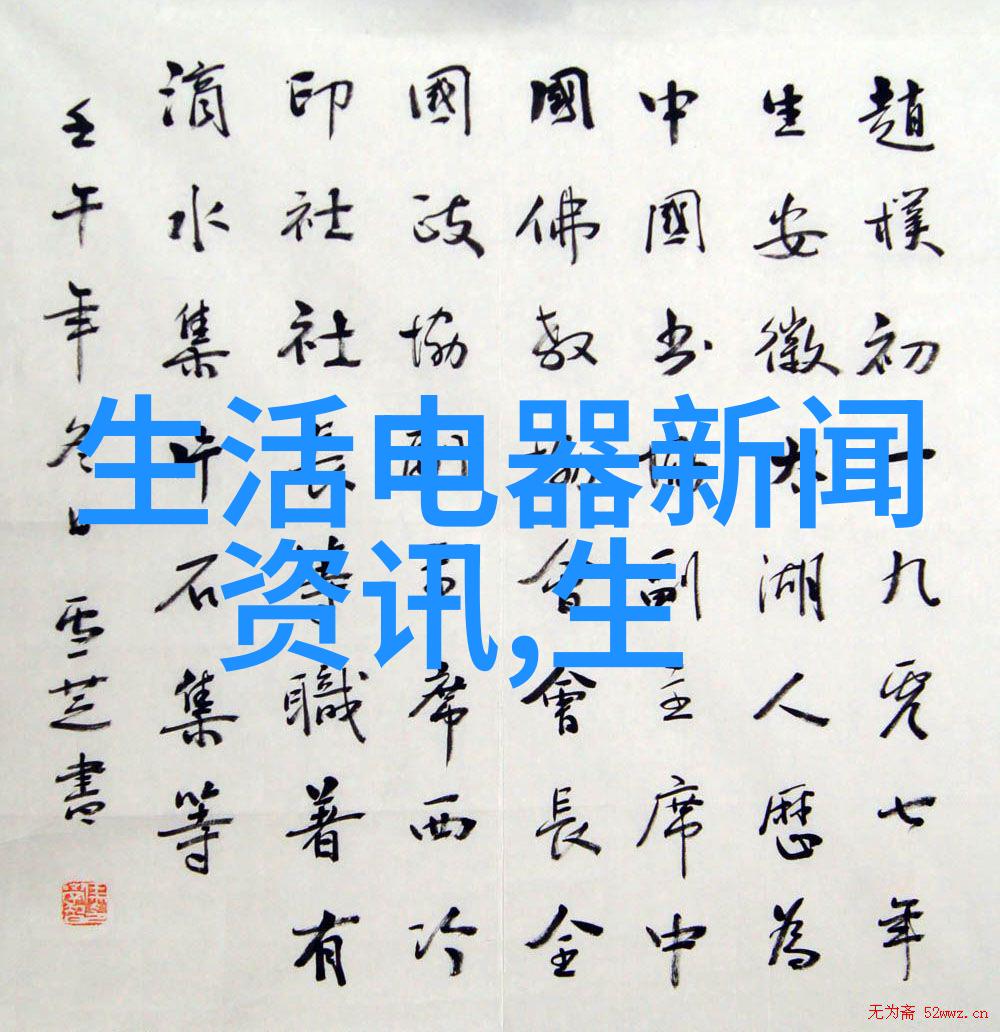 趙樸初一九零七年
生安徽太湖人歷為
中國书协副主席中
國佛教協會會長全
國政協副主席西冷
印社社長等職著有
滴水集片石集等
壬午年冬日雪芝書
生活电器新闻
资讯,生
无为斋 52wwz.cn